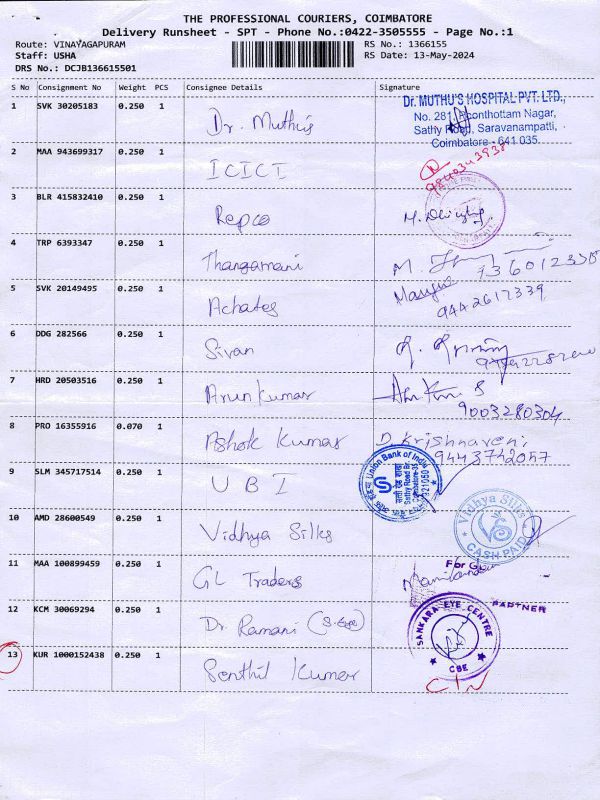 THE PROFESSIONAL COURIERS, COIMBATORE
Delivery Runsheet - SPT - Phone No.:0422-3505555 - Page No.:1
Route: VINAYAGAPURAM RS No.: 1366155
Staff: USHA RS Date: 13-May-2024
DRS No.: DCJB136615501
S No Consignment No Weight PCS Consignee Details Signature
1 SVK 30205183 0.250 1 Dr. Muthus
Dr. MUTHU'S HOSPITAL PVT. LTD.,
No. 281, Thonthottam Nagar,
Sathy Road, Saravanampatti,
Coimbatore - 641 035.
2 MAA 943699317 0.250 1 ICICI
3 BLR 415832410 0.250 1 Repco
4 TRP 6393347 0.250 1 Thangamani M.
5 SVK 20149495 0.250 1 Achates
9442617339
6 DDG 282566 0.250 1 Sivan
7 HRD 20503516 0.250 1 Arunkumar
9003280304
8 PRO 16355916 0.070 1 Ashok Kumar D. Krishnaveni
9443742057
9 SLM 345717514 0.250 1 UBI
Union Bank of India
921050
10 AMD 28600549 0.250 1 Vidhya Silks
Vidhya Silks
VS
CASH PAID
11 MAA 100899459 0.250 1 GL Traders
For GL
PARTNER
12 KCM 30069294 0.250 1 Dr. Ramani (S-Eye)
SANKARA EYE CENTRE
CBE
13 KUR 1000152438 0.250 1 Senthil Kumar